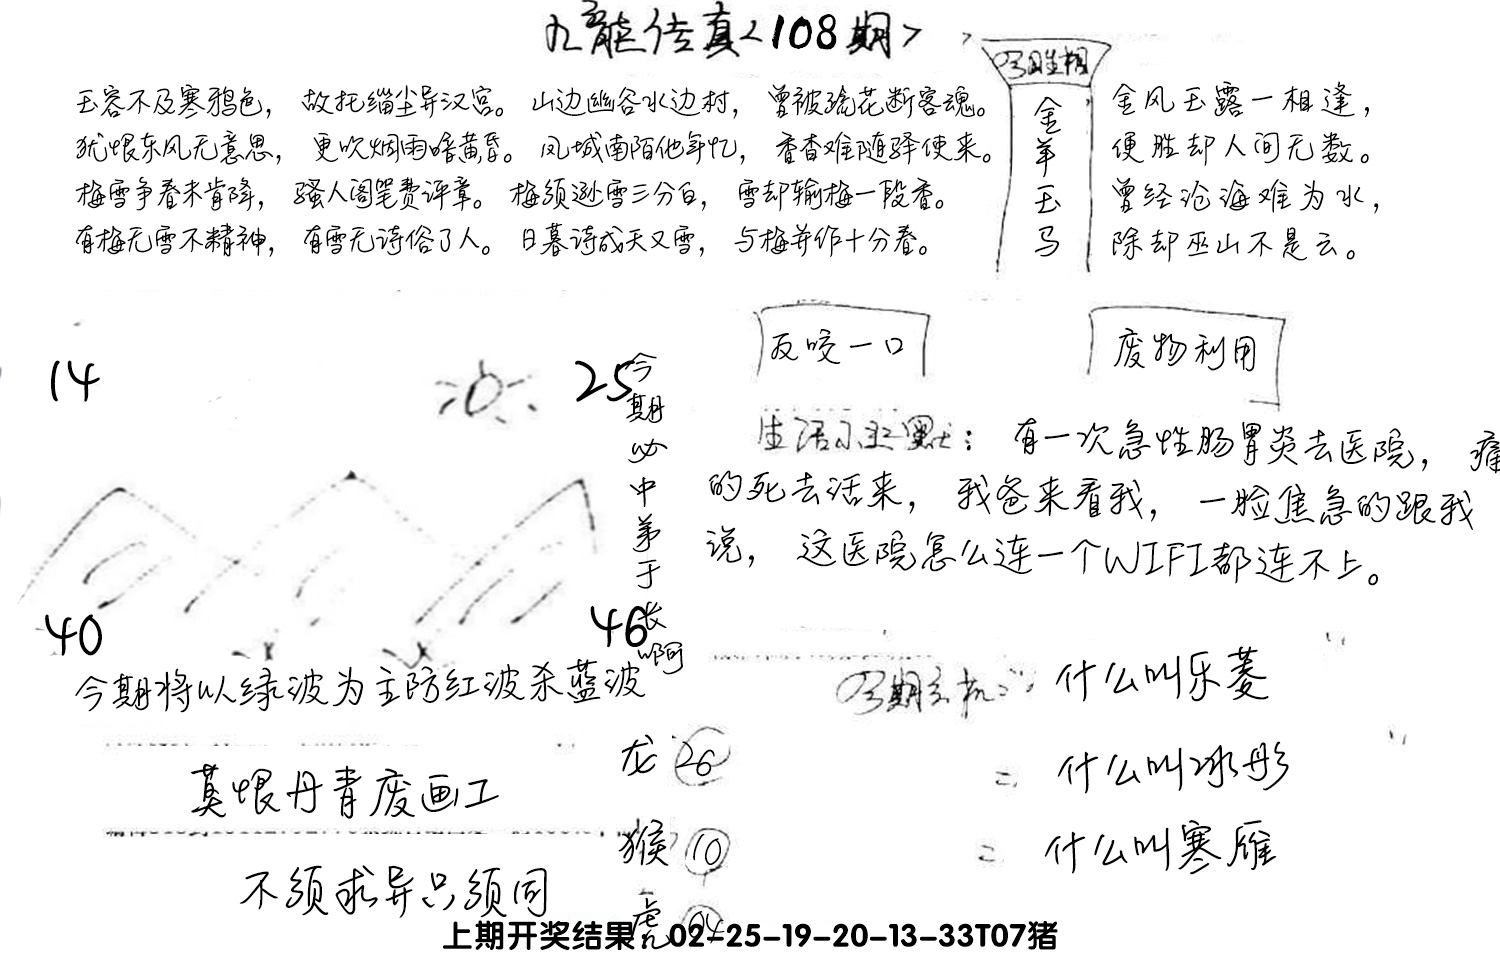 九龍传真<108期>
玉容不及寒鸦色，故托缁尘异汉宫。山边幽谷水边村，曾被疏花断客魂。
犹恨东风无意思，更吹烟雨暗黄昏。凤城南陌他年忆，香杳难随驿使来。
梅雪争春未肯降，骚人阁笔费评章。梅须逊雪三分白，雪却输梅一段香。
有梅无雪不精神，有雪无诗俗了人。日暮诗成天又雪，与梅并作十分春。
今期胜相
金羊玉马
金风玉露一相逢，
便胜却人间无数。
曾经沧海难为水，
除却巫山不是云。
14
25
40
46
今期必中第于长啊
今期将以绿波为主防红波杀蓝波
反咬一口
废物利用
生活小幽默：有一次急性肠胃炎去医院，痛
的死去活来，我爸来看我，一脸焦急的跟我
说，这医院怎么连一个WIFI都连不上。
今期玄机：什么叫乐菱
= 什么叫冰彤
= 什么叫寒雁
莫恨丹青废画工
不须求异只须同
龙 26
猴 10
虎 04
上期开奖结果：02-25-19-20-13-33T07猪